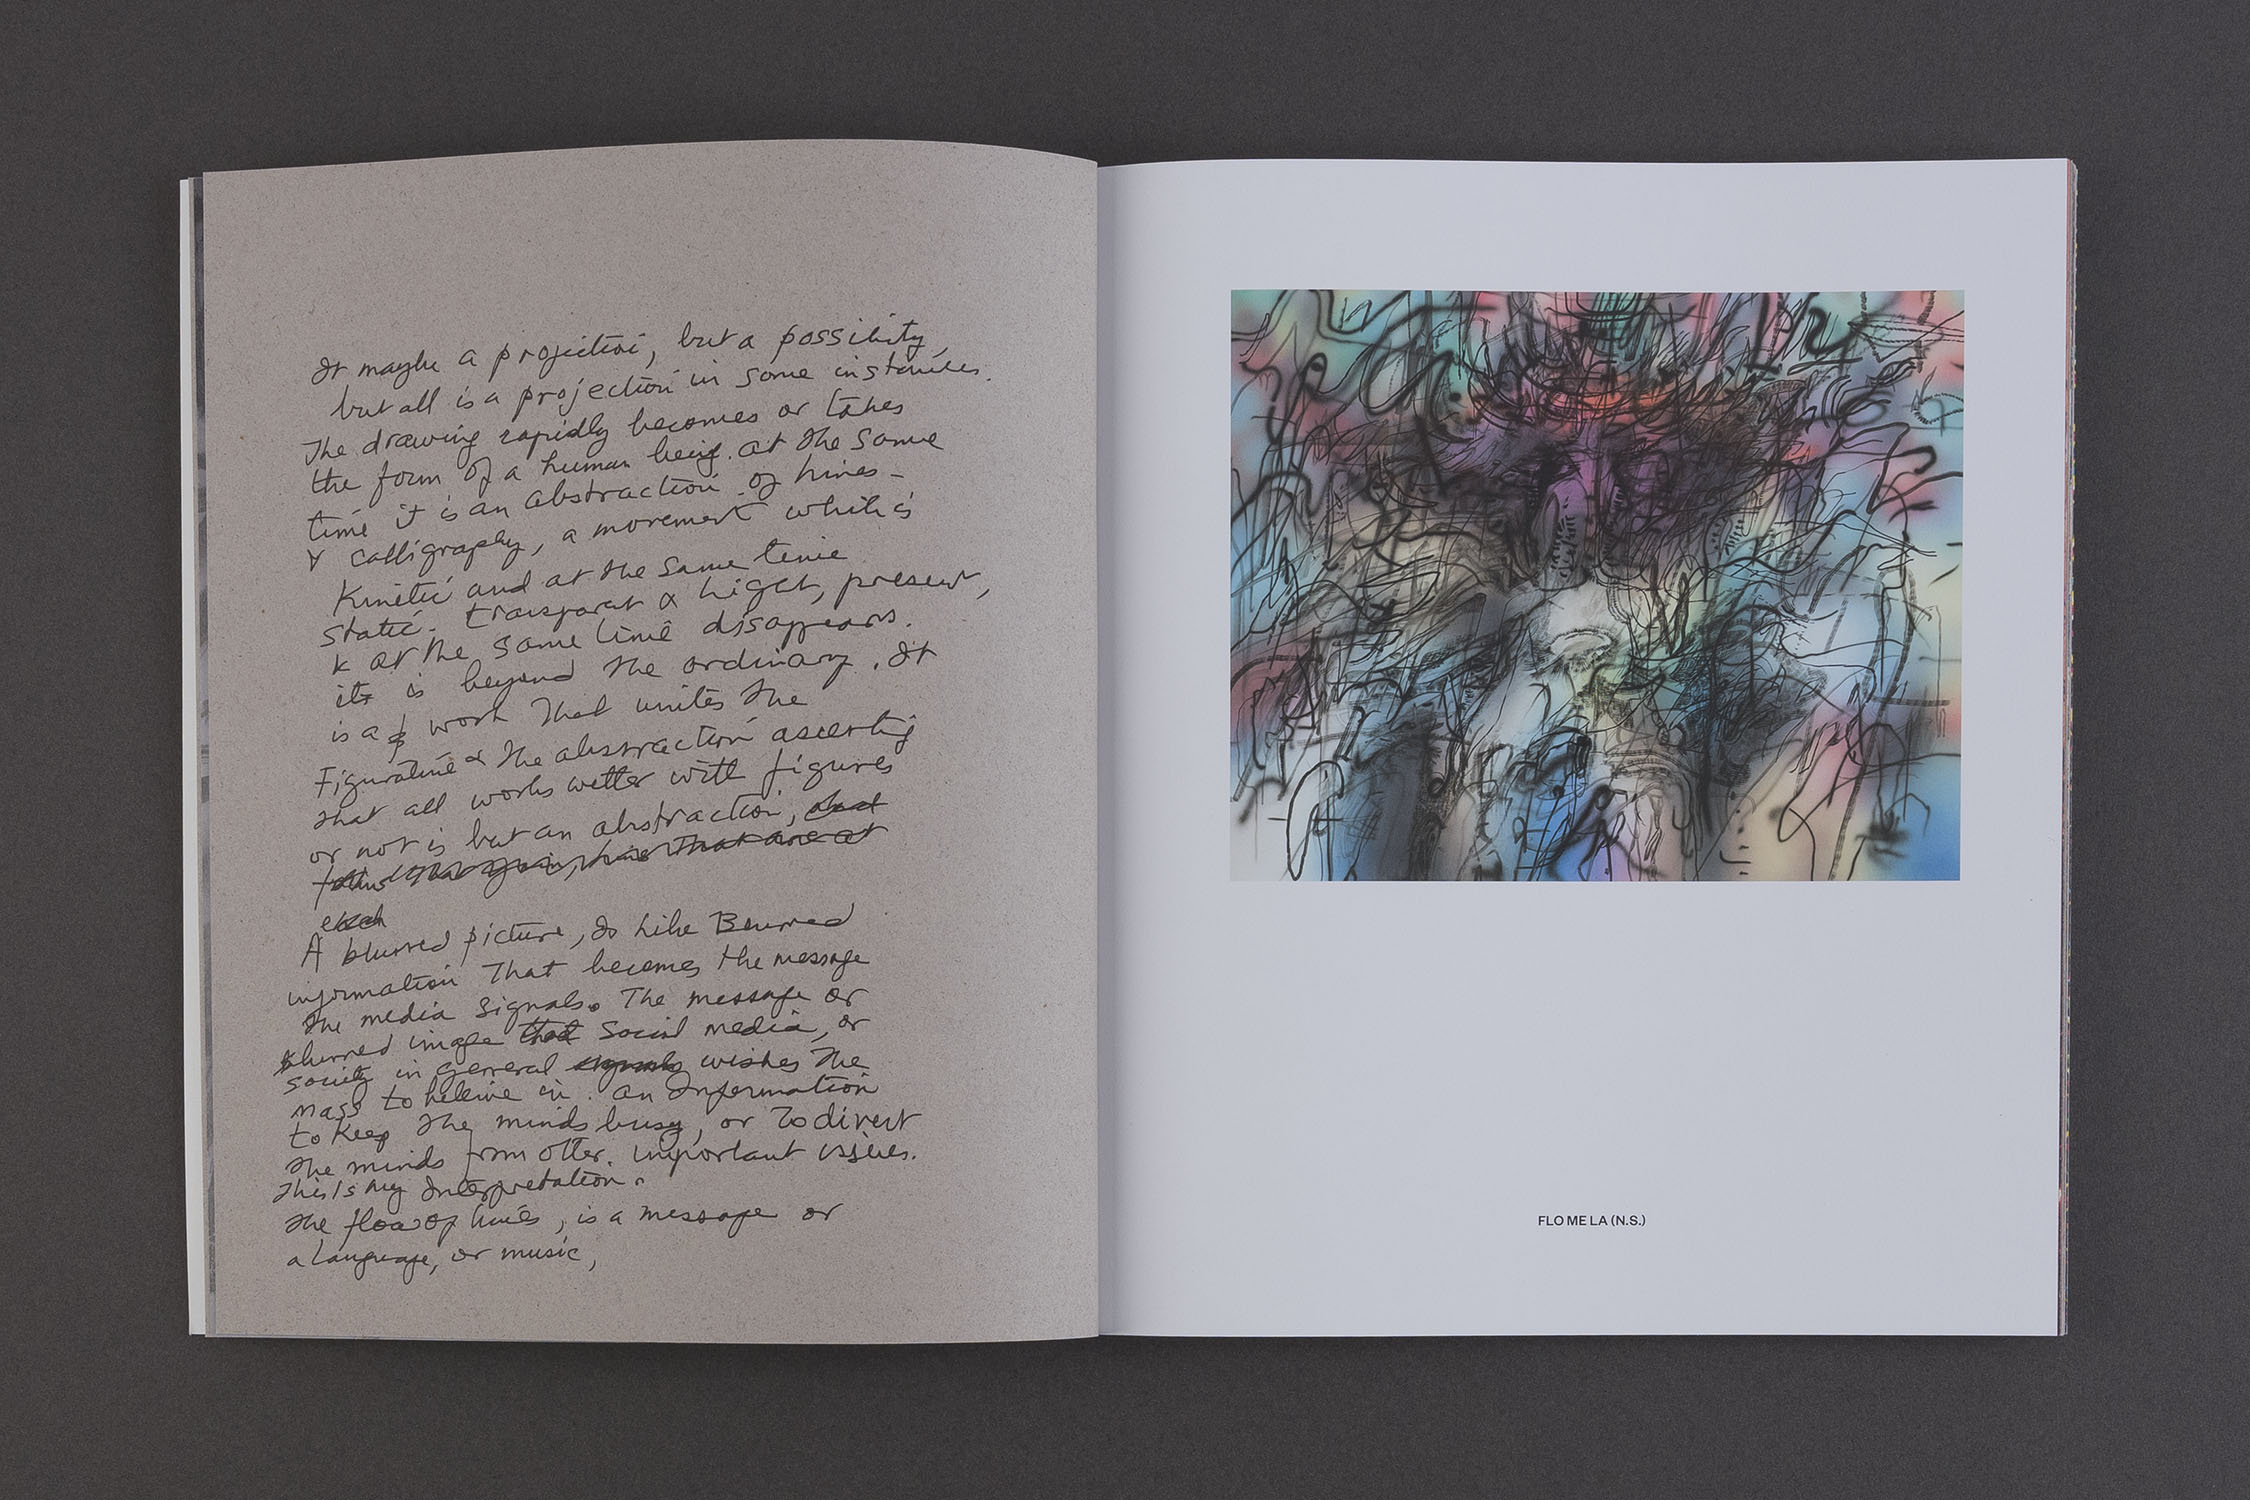 It maybe a projection, but a possibility,
but all is a projection in some instances.
The drawing rapidly becomes or takes
the form of a human being. at the same
time it is an abstraction of lines -
calligraphy, a movement which is
Kinetic and at the same time
static. transparat & Light, present,
& at the same time disappears.
its is beyond the ordinary. It
is a work that unites the
Figurative & the abstraction asserting
that all works wether with figures
or not is but an abstraction,
that are at
each
A blurred picture, Is Like Blurred
information That becomes the message
The media Signals. The message or
blurred image that Social media, or
society in general signals wishes The
mass to believe in. an Information
to Keep The minds busy, or To divert
The minds from other. important issues.
This Is my Interpretation.
The flow of lines, is a message or
a language, or music,
FLO ME LA (N.S.)